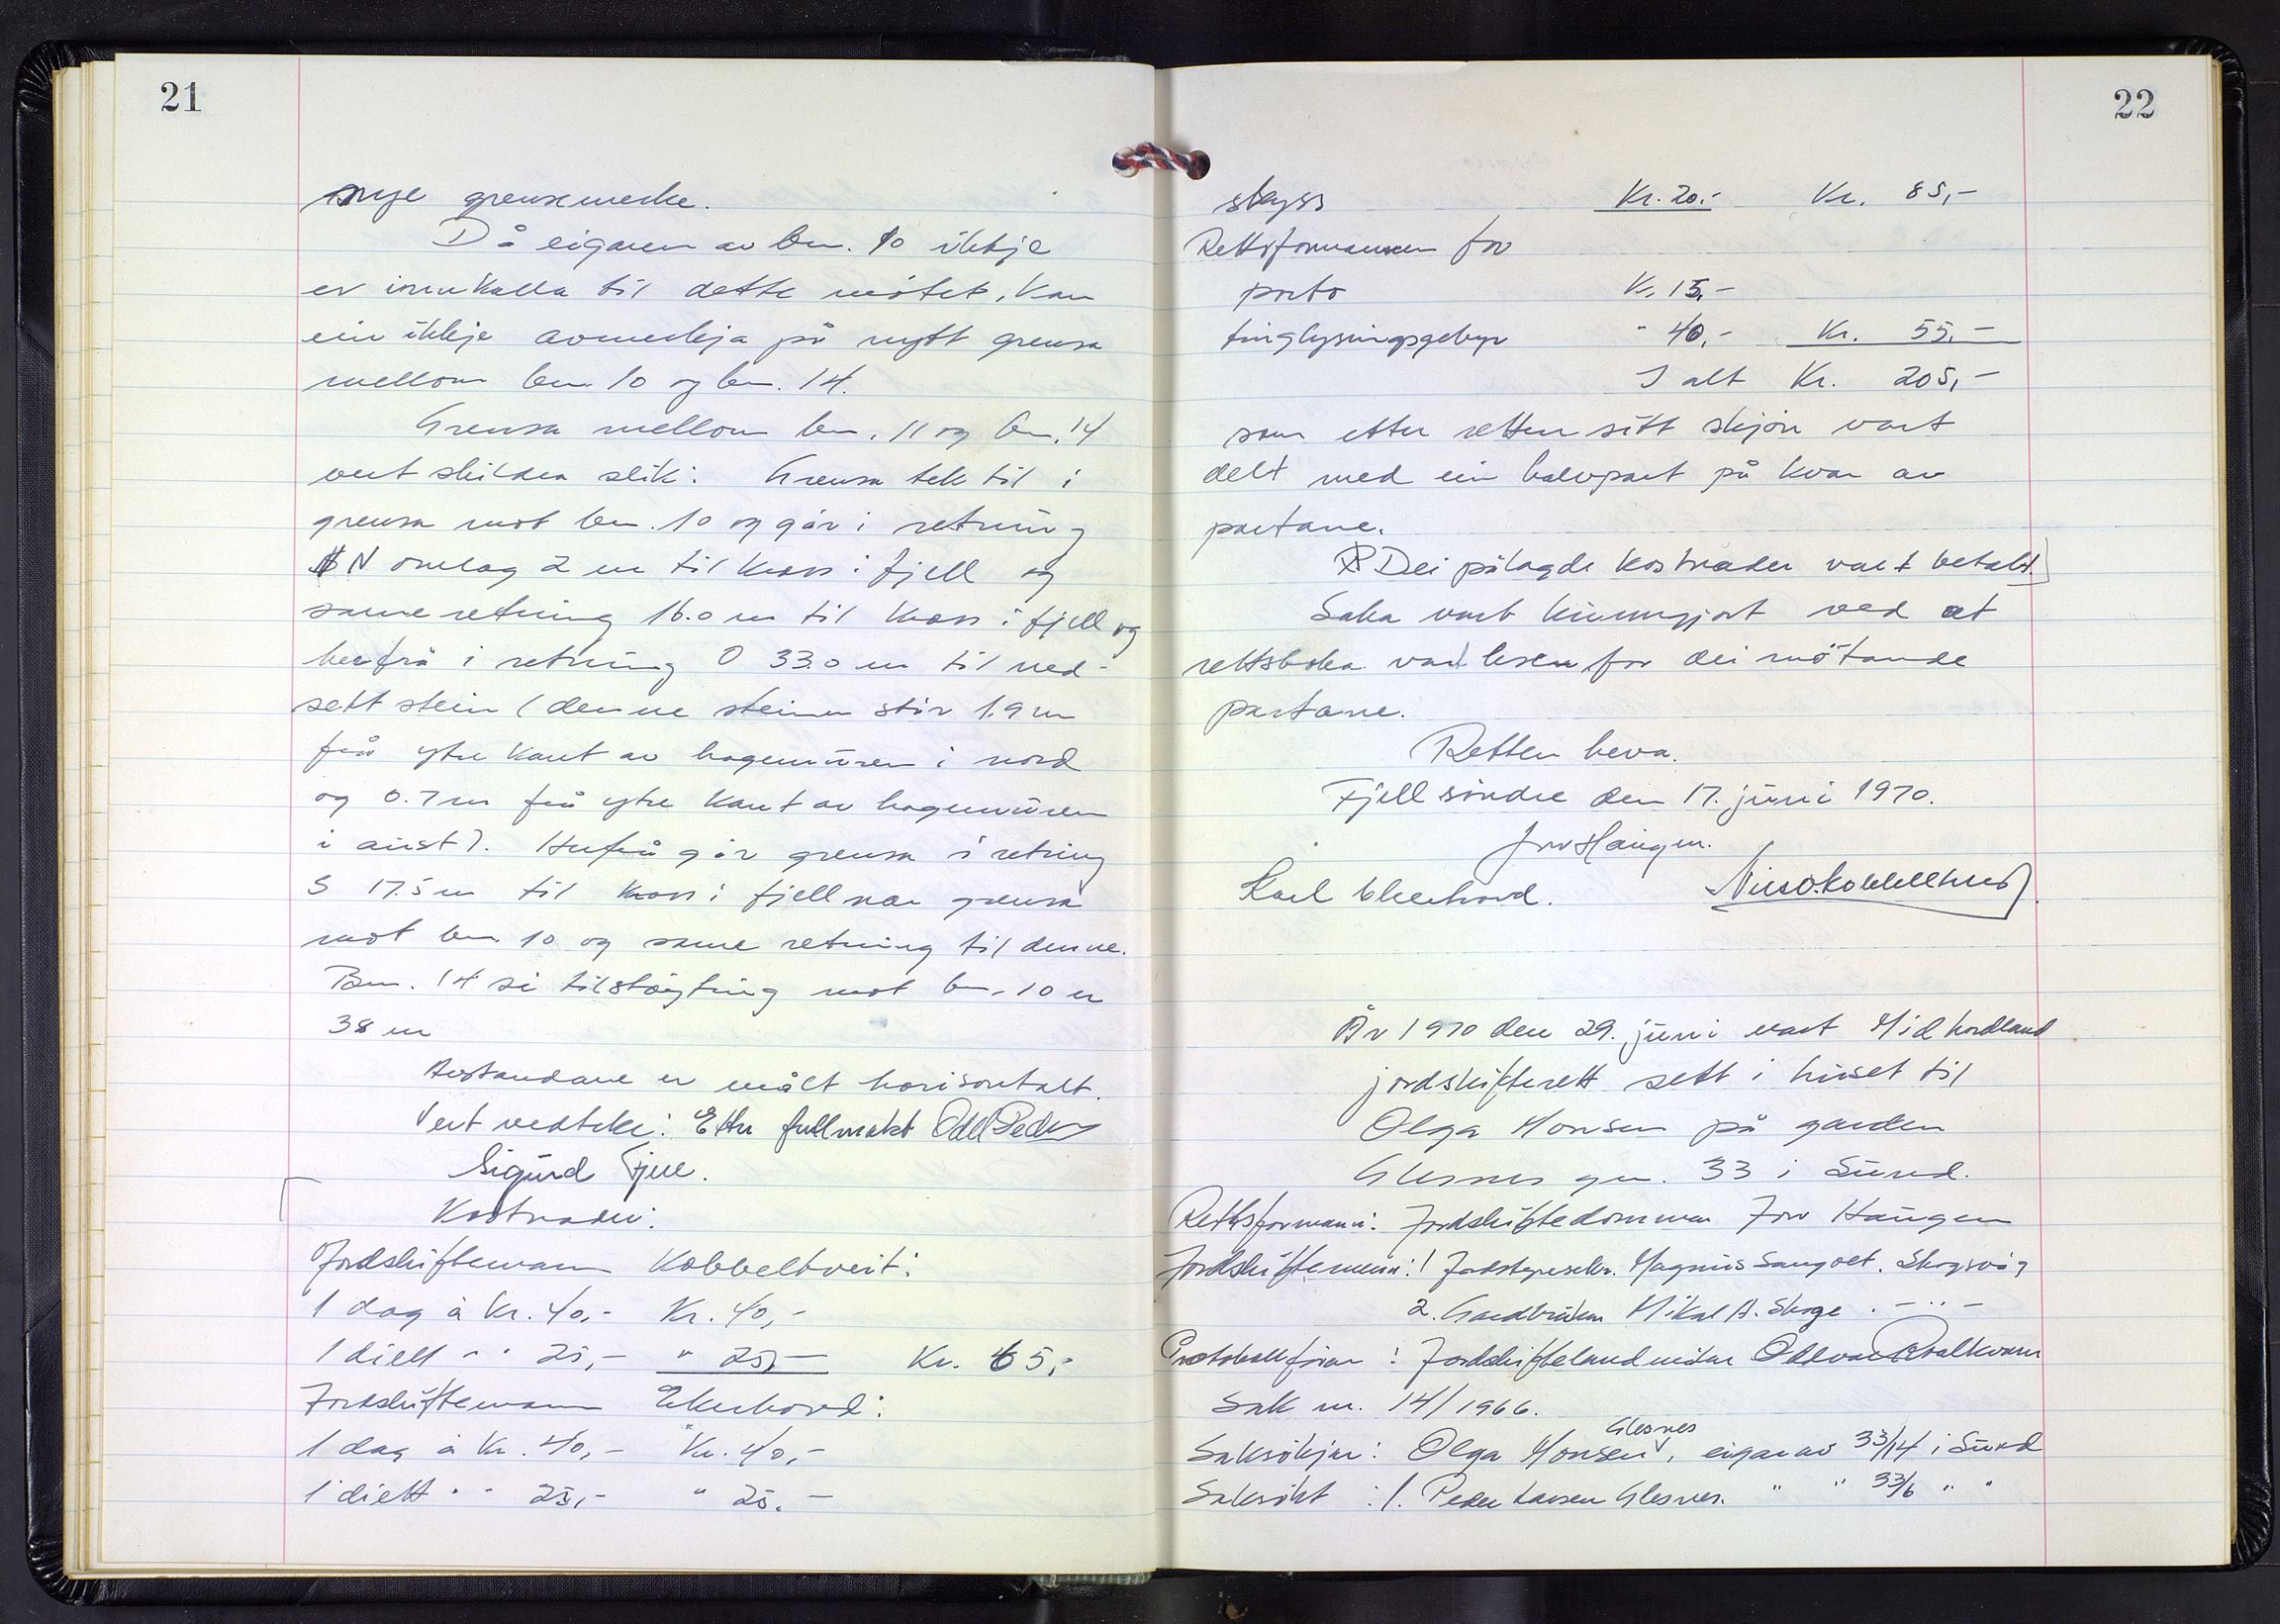 21
nye grensemerke.
Då eigaren av bnr. 10 ikkje
er innkalla til dette møtet, kan
ein ikkje avmerkja på nytt grensa
mellom bnr. 10 og bnr. 14.
Grensa mellom bnr. 11 og bnr. 14
vert skildra slik: Grensa tek til i
grensa mot bnr. 10 og går i retning
N omlag 2 m til kross i fjell og
same retning 16.0 m til kross i fjell og
herfrå i retning O 33.0 m til ned-
sett stein (denne steinen står 1.9 m
frå ytre kant av hagemuren i nord
og 0.7 m frå ytre kant av hagemuren
i aust). Herfrå går grensa i retning
S 17.5 m til kross i fjell nær grensa
mot bnr. 10 og same retning til denne.
Bnr. 14 si tilstøyting mot bnr. 10 er
38 m
Avstandane er målt horisontalt.
Vert vedteke: Etter fullmakt Odd Peder
Sigurd Fjell.
Kostnader:
Jordskiftemann Kobbeltveit:
1 dag à kr. 40,- Kr. 40,-
1 diett " " 25,- " 25,- Kr. 65,-
Jordskiftemann Ekerhovd:
1 dag à kr. 40,- Kr. 40,-
1 diett " " 25,- " 25.-
22
skyss Kr. 20.- Kr. 85,-
Rettsformannen for
porto Kr. 15,-
tinglysingsgebyr " 40,- Kr. 55,-
I alt Kr. 205,-
som etter retten sitt skjøn vart
delt med ein halvpart på kvar av
partane.
Dei pålagde kostnader vart betalt.
Saka vart kunngjort ved at
rettsboka vart lesen for dei møtande
partane.
Retten heva.
Fjell søndre den 17. juni 1970.
Jon Haugen.
Karl Ekerhovd. Nils O. Kobbeltveit
År 1970 den 29. juni vart Midhordland
jordskifterett sett i huset til
Olga Monsen på garden
Glesnes gnr. 33 i Sund.
Rettsformann: Jordskiftedommar Jon Haugen
Jordskiftemenn: 1 Magnus Sangolt. Skogsvåg
2. Gardbrukar Mikal A. Skoge . - " -
Protokollførar : Jordskiftelandmålar Oddvar Dalkvam
Sak nr. 14/1966.
Glesnes
Saksøkjar: Olga Monsen, eigar av 33/14 i Sund
Saksøkt : 1. Peder Larsen Glesnes. " " 33/6 " "